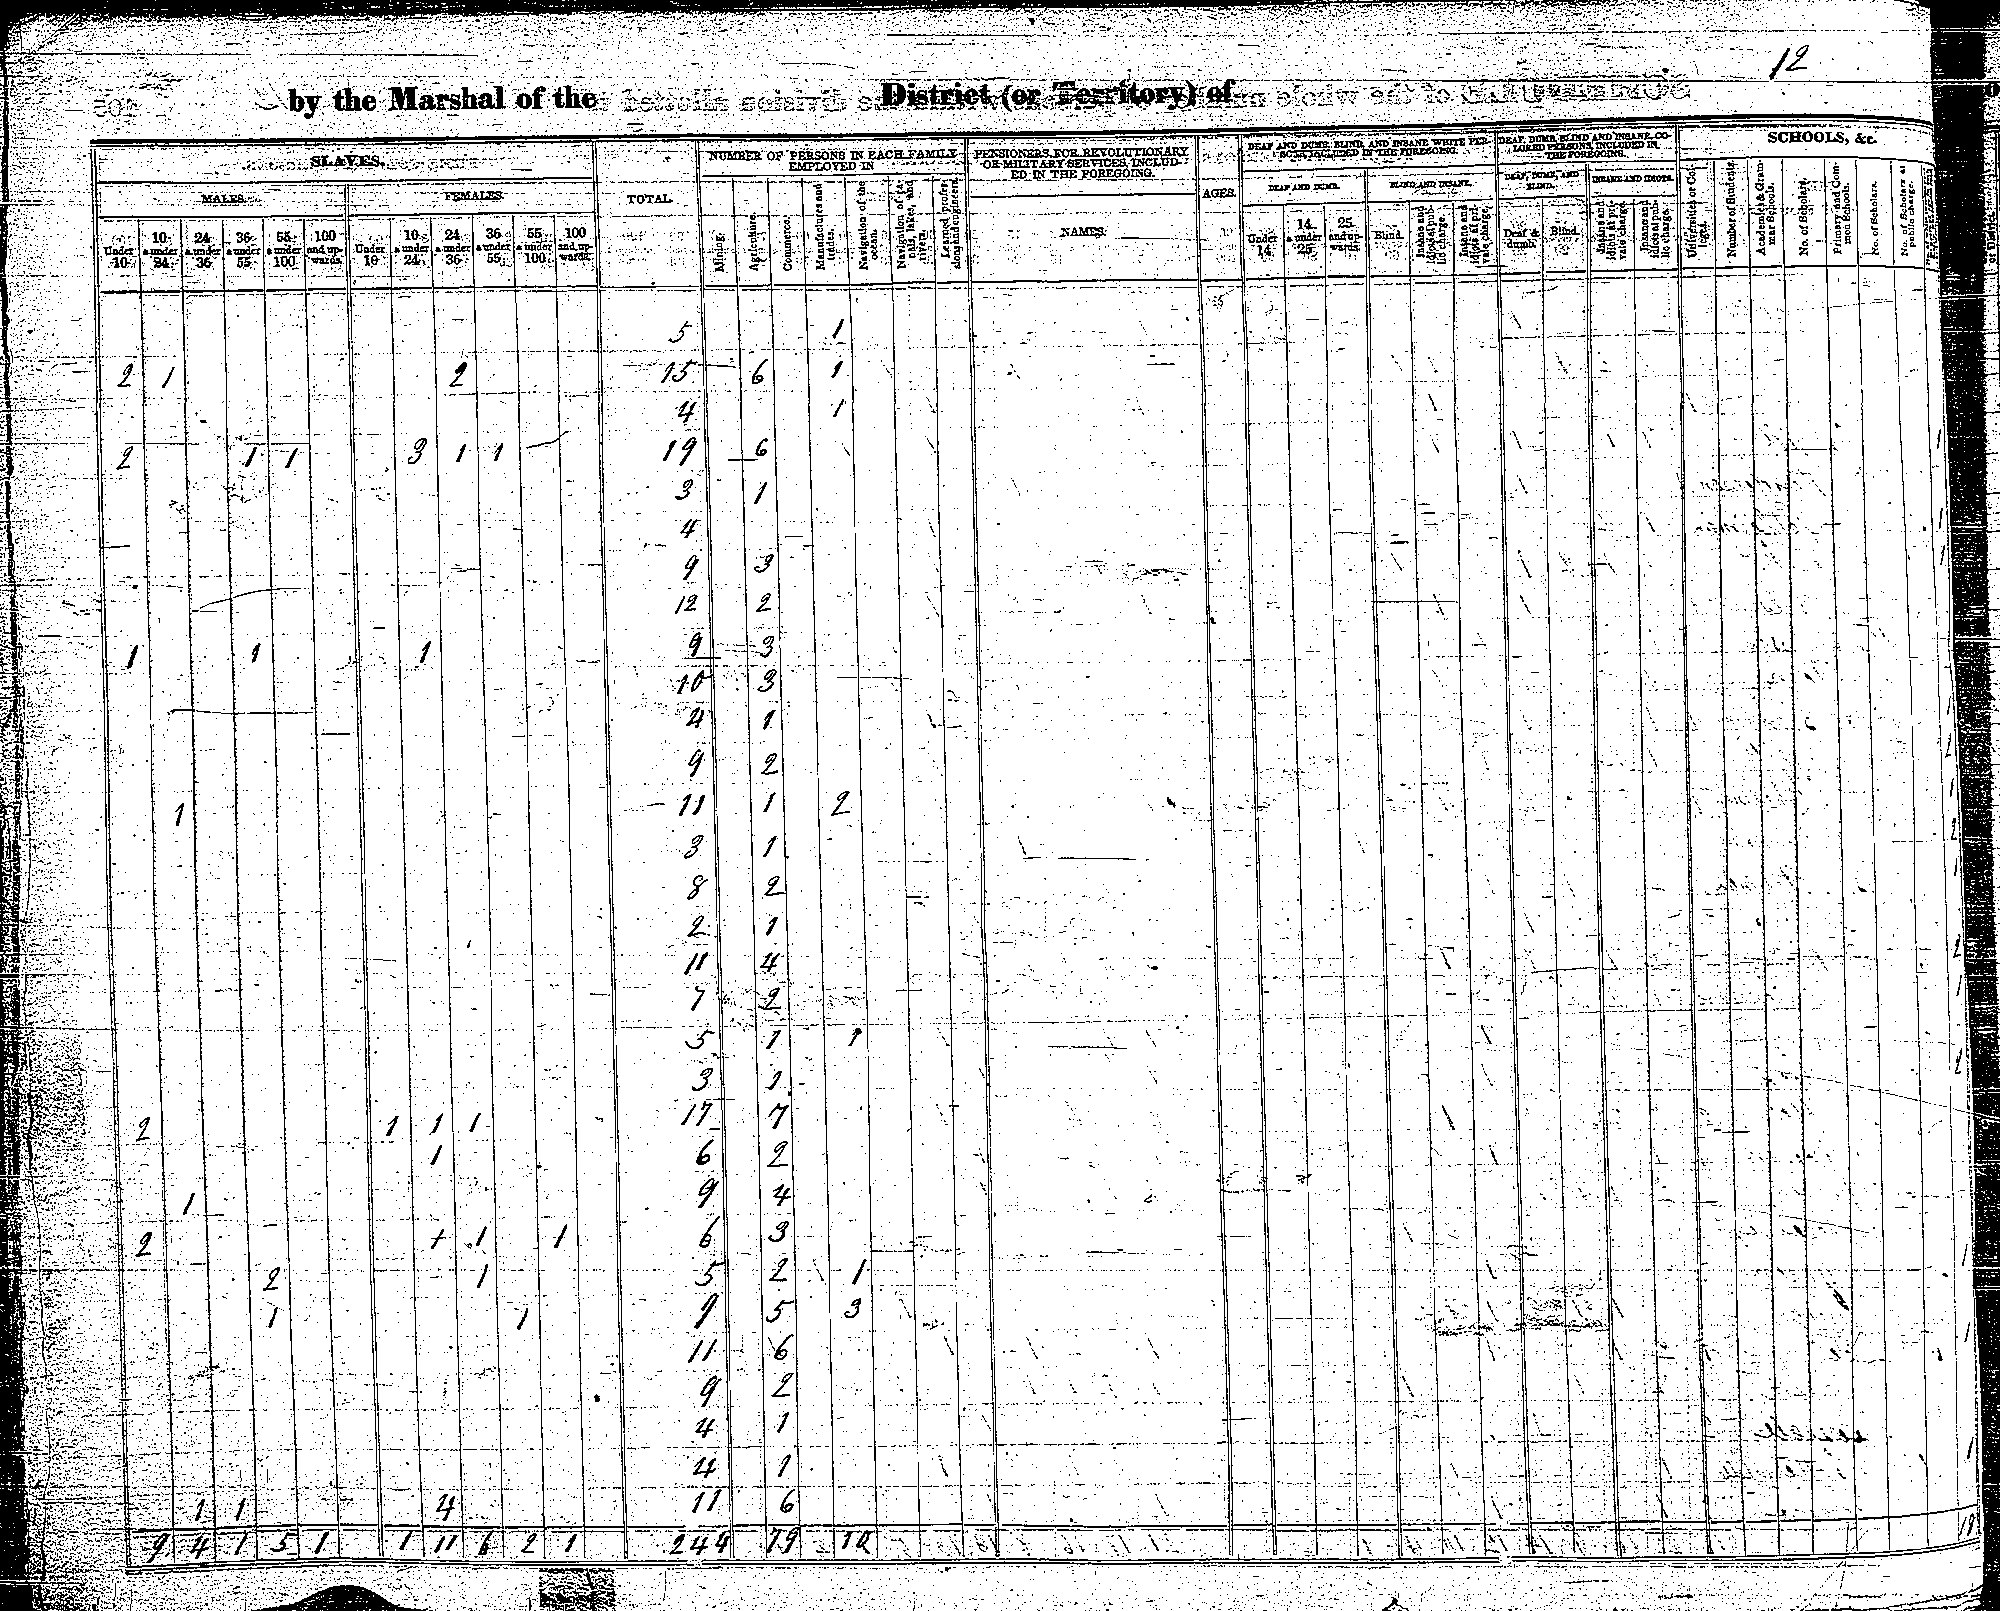 12
by the Marshal of the District (or Territory) of
SLAVES. TOTAL. NUMBER OF PERSONS IN EACH FAMILY EMPLOYED IN PENSIONERS FOR REVOLUTIONARY OR MILITARY SERVICES, INCLUDED IN THE FOREGOING. AGES. DEAF AND DUMB, BLIND AND INSANE WHITE PERSONS, INCLUDED IN THE FOREGOING. DEAF, DUMB, BLIND AND INSANE COLORED PERSONS, INCLUDED IN THE FOREGOING. SCHOOLS, &c.
MALES. FEMALES. NAMES. DEAF AND DUMB. BLIND AND INSANE. DEAF, DUMB, AND BLIND. INSANE AND IDIOTS.
Under 10 10 & under 24 24 & under 36 36 & under 55 55 & under 100 100 and upwards. Under 10 10 & under 24 24 & under 36 36 & under 55 55 & under 100 100 and upwards. Mining. Agriculture. Commerce. Manufactures and trades. Navigation of the ocean. Navigation of canals, lakes and rivers. Learned professions and engineers. Under 14 14 & under 25 25 and upwards. Blind. Insane and idiots at public charge. Insane and idiots at private charge. Deaf & dumb. Blind. Insane and idiots at private charge. Insane and idiots at public charge. Universities or College. Number of Students. Academies & Grammar Schools. No. of Scholars. Primary and Common Schools. No. of Scholars. No. of Scholars at public charge.
5 1
2 1 2 15 6 1
4 1
2 1 1 3 1 1 19 6
3 1
4
9 3
12 2
1 1 1 9 3
10 3
4 1
9 2
1 11 1 2
3 1
8 2
2 1
11 4
7 2
5 1 1
3 1
2 1 1 1 17 7
1 6 2
1 9 4
2 1 1 1 6 3
2 1 5 2 1
1 1 9 5 3
11 6
9 2
4 1
4 1
1 1 4 11 6
9 4 1 5 1 1 11 6 2 1 244 79 10